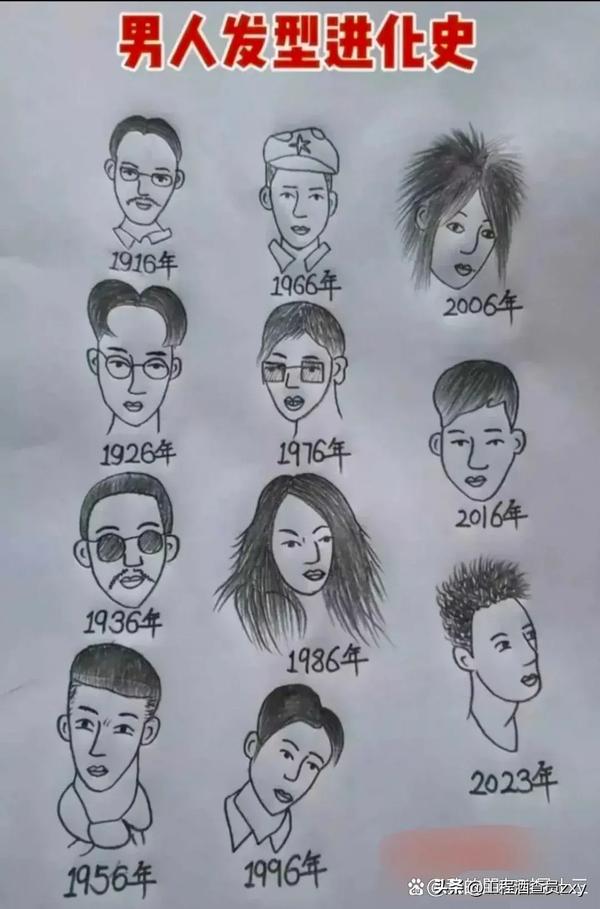 男人发型进化史
1916年
1966年
2006年
1926年
1976年
2016年
1936年
1986年
2023年
1956年
1996年
头条@工程酒查员zxy